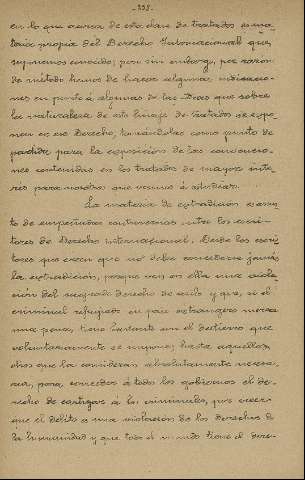 -238-
en lo que acerca de esta clase de tratados es ma-
teria propia del Derecho Internacional que
suponemos conocido; pero sin embargo, por razon
de método hemos de hacer algunas indicacio-
nes en punto á algunas de las ideas que sobre
la naturaleza de este linaje de tratados se expo-
nen en ese Derecho, tomándolas como punto de
partida para la exposicion de las convencio-
nes contenidas en los tratados de mayor inte-
res para nosotros que vamos á estudiar.
La materia de extradicion es asun-
to de empeñadas controversias entre los escri-
tores de Derecho internacional. Desde los escri-
tores que creen que no debe concederse jamás
la extradicion, porque ven en ella una viola-
cion del sagrado derecho de asilo y que, si el
criminal refugiado en pais extranjero merece
una pena, tiene bastante con el destierro que
voluntariamente se impone; hasta aquellos
otros que la consideran absolutamente necesa-
ria, para conceder á todos los gobiernos el de-
recho de castigar á los criminales, pues creen
que el delito es una violacion de los derechos de
la humanidad y que todo el mundo tiene el dere-